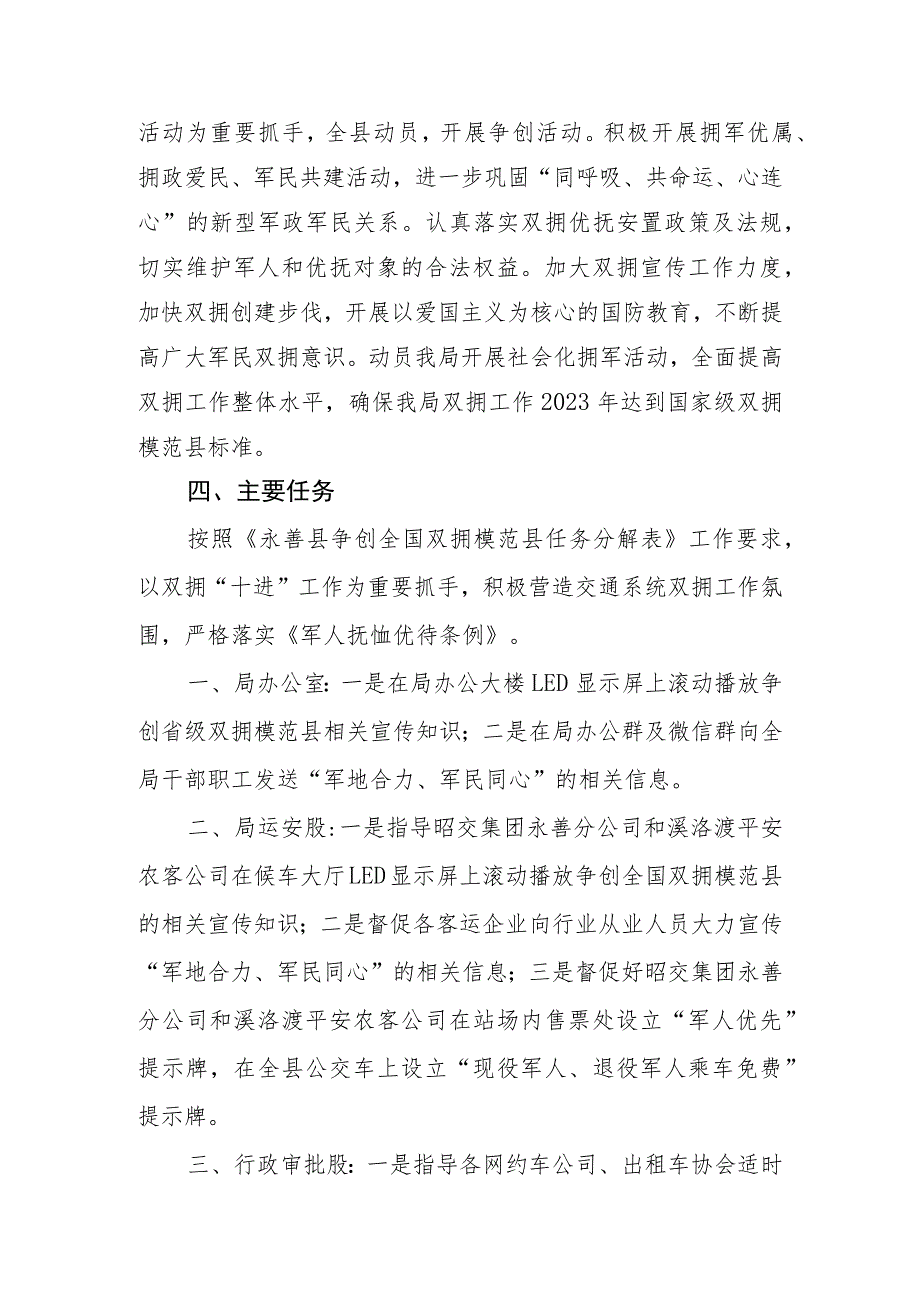 活动为重要抓手，全县动员，开展争创活动。积极开展拥军优属、
拥政爱民、军民共建活动，进一步巩固“同呼吸、共命运、心连
心”的新型军政军民关系。认真落实双拥优抚安置政策及法规，
切实维护军人和优抚对象的合法权益。加大双拥宣传工作力度，
加快双拥创建步伐，开展以爱国主义为核心的国防教育，不断提
高广大军民双拥意识。动员我局开展社会化拥军活动，全面提高
双拥工作整体水平，确保我局双拥工作 2023 年达到国家级双拥
模范县标准。
四、主要任务
按照《永善县争创全国双拥模范县任务分解表》工作要求，
以双拥“十进”工作为重要抓手，积极营造交通系统双拥工作氛
围，严格落实《军人抚恤优待条例》。
一、局办公室：一是在局办公大楼 LED 显示屏上滚动播放争
创省级双拥模范县相关宣传知识；二是在局办公群及微信群向全
局干部职工发送“军地合力、军民同心”的相关信息。
二、局运安股：一是指导昭交集团永善分公司和溪洛渡平安
农客公司在候车大厅 LED 显示屏上滚动播放争创全国双拥模范县
的相关宣传知识；二是督促各客运企业向行业从业人员大力宣传
“军地合力、军民同心”的相关信息；三是督促好昭交集团永善
分公司和溪洛渡平安农客公司在站场内售票处设立“军人优先”
提示牌，在全县公交车上设立“现役军人、退役军人乘车免费”
提示牌。
三、行政审批股：一是指导各网约车公司、出租车协会适时